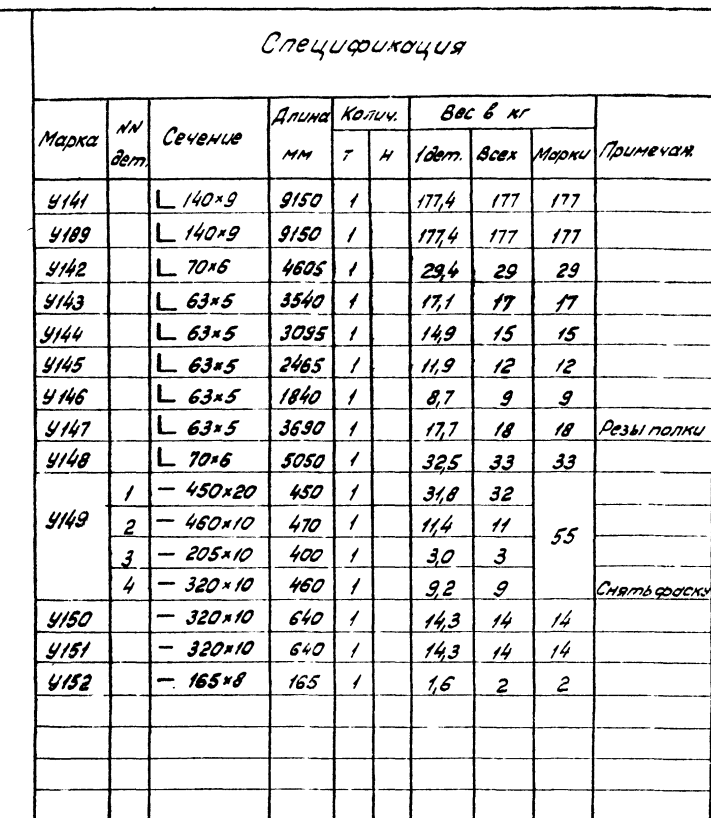 Спецификация
Марка NN дет. Сечение Длина мм Колич. Т Н Вес в кг 1дет. Всех Марки Примечан.
У141 L 140×9 9150 1 177,4 177 177
У189 L 140×9 9150 1 177,4 177 177
У142 L 70×6 4605 1 29,4 29 29
У143 L 63×5 3540 1 17,1 17 17
У144 L 63×5 3095 1 14,9 15 15
У145 L 63×5 2465 1 11,9 12 12
У146 L 63×5 1840 1 8,7 9 9
У147 L 63×5 3690 1 17,7 18 18 Резы полки
У148 L 70×6 5050 1 32,5 33 33
У149 1 — 450×20 450 1 31,8 32 55
2 — 460×10 470 1 11,4 11
3 — 205×10 400 1 3,0 3
4 — 320×10 460 1 9,2 9 Снять фаску
У150 — 320×10 640 1 14,3 14 14
У151 — 320×10 640 1 14,3 14 14
У152 — 165×8 165 1 1,6 2 2